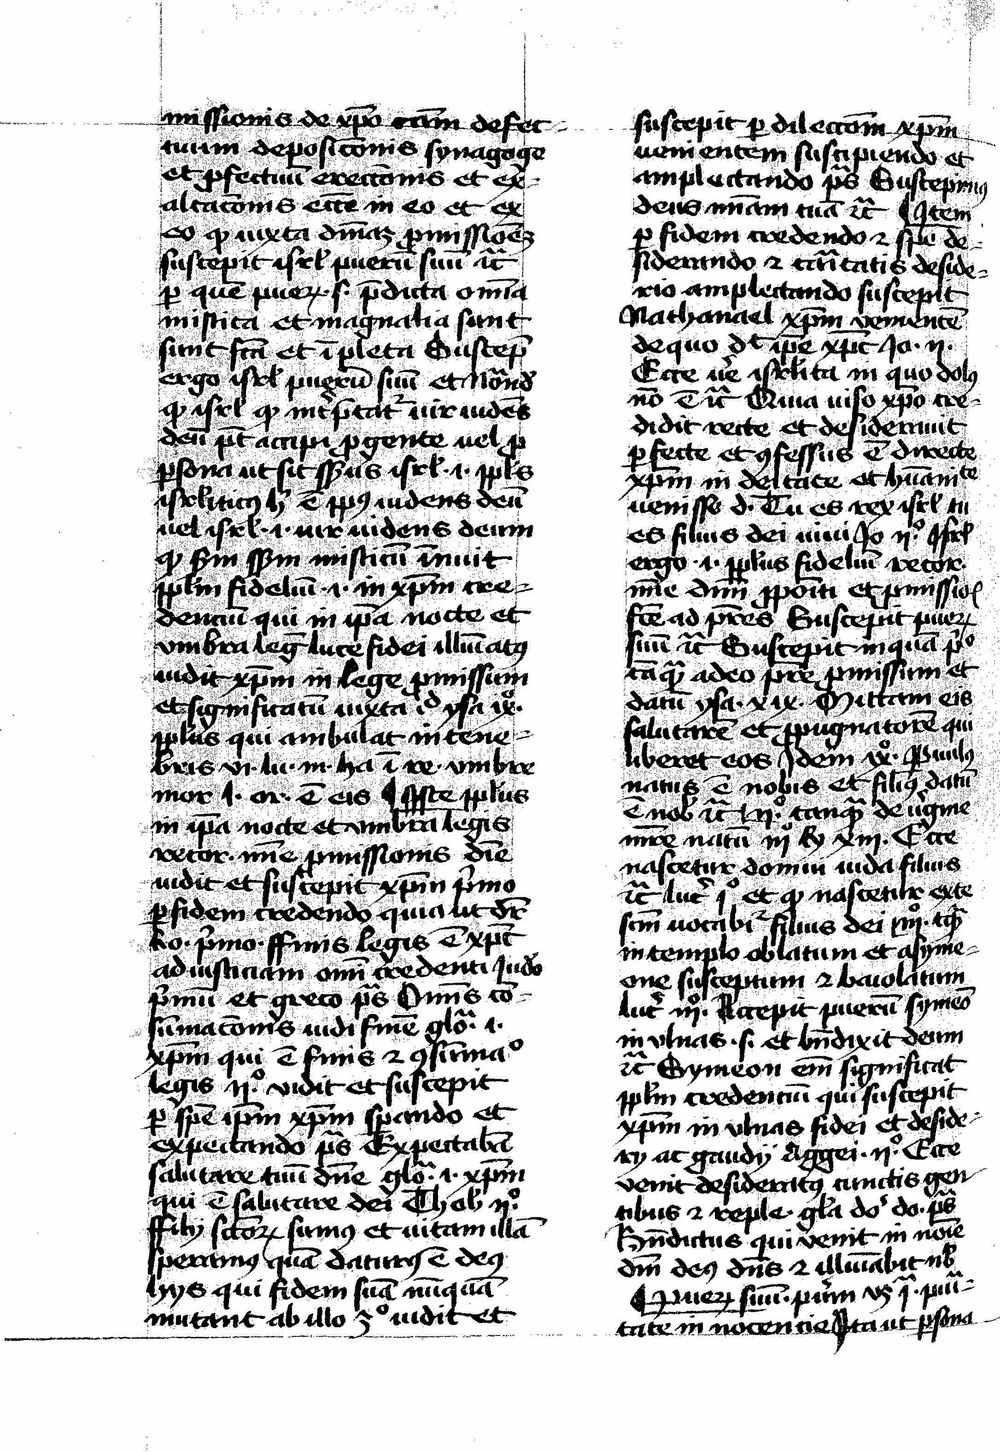 missionis de xpo etiam defec-
tuum deposicionis synagoge
et pfectiuu erectionis et ex-
altacionis eccle in eo et ex
eo qd iuxta diuinas pmissiones
suscepit isrl pueru suu etc
per que pueru .s. pdicta omnia
mistica et magnalia sunt
sunt fca et ipleta Suscepit
ergo isrl pueru suu et
qd isrl qd intptatr uir uidens
deu pt accipi p gente uel p
psona ut sit ssus isrl .i. ppls
isrliticus h e pps uidens deu
uel isrl .i. uir uidens deum
qd scdm ssum misticu innuit
pplm fideliu .i. in xpm cre-
denciu qui in ipa nocte et
vmbra leg luce fidei illuiatus
uidit xpm in lege pmissum
et significatu iuxta id ysa ix.
ppls qui ambulat in tene-
bris vi. lu. m. ha i re. vmbre
mor l. or. e eis Iste ppls
in ipa nocte et vmbra legis
recor. mie pmissionis die
uidit et suscepit xpm pmo
p fidem credendo quia ut dr
Ro. pmo. ffinis legis e xpc
ad iusticiam omi credenti iudeo
pmu et greco ps Omis co-
sumacionis uidi fine glo. .i.
xpm qui e finis et consuma
legis iio vidit et suscepit
p spe ipm xpm spando et
expectando ps Expectabam
salutare tuu dne glo. .i. xpm
qui e salutare dei Thob iio
ffilij sctoru sumus et uitam illa
speramus qua daturus e deus
hijs qui fidem sua nunqua
mutant ab illo 3o uidit et
suscepit p dilectiom xpm
uenientem suscipiendo et
amplectando ps Suscepimus
deus miam tua etc Item
p fidem credendo et spe de-
siderando et caritatis deside-
rio amplectando suscepit
Nathanael xpm veniente
de quo dt ipe xpc Jo. ii.
Ecce ue isrlita in quo dolus
no e etc Quia uiso xpo cre-
didit recte et desiderauit
pfecte et confessus e directe
xpm in deitate et huanite
uenisse d. Tu es rex isrl tu
es filius dei uiui Jo iio Isrl
ergo .i. ppls fideliu recor.
mie diui ppoiti et pmissiois
fce ad pres Suscepit pueru
suu etc Suscepit inqua po
taqa a deo pre pmissum et
datu ysa. xix. Mittam eis
saluatore et ppugnatore qui
liberet eos Idem ix. Paruulus
natus e nobis et filius datus
e nob etc iio tanqa de uigine
mre natu iiio Ry xiii. Ecce
nascetur domui iuda filius
etc luc io et qd nascetur ex te
scm uocabir filius dei iiiio tqa
in templo oblatum et a syme-
one susceptum et baiolatum
luc iio. Accepit pueru symeo
in vlnas .s. et bndixit deum
etc Symeon em significat
pplm credenciu qui suscepit
xpm in vlnas fidei et deside-
rij ac gaudij Aggei. iio Ecce
venit desideratus cunctis gen
tibus et reple. gla do do. ps
Bndictus qui venit in noie
dni deus dns et illuiabit nob
Pueru suu. puru vz i. pui-
tate innocencie Ita ut psona